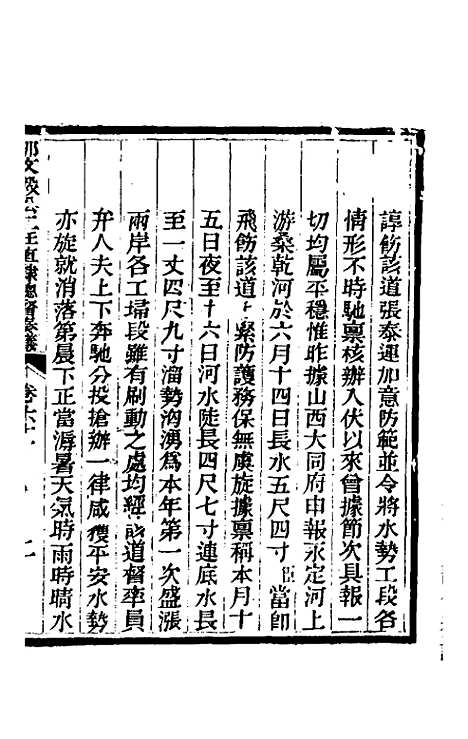 諄飭該道張泰運加意防範並令將水勢工段各
情形不時馳稟核辦入伏以來曾據節次具報一
切均屬平穩惟昨據山西大同府申報永定河上
游桑乾河於六月十四日長水五尺四寸臣當卽
飛飭該道上緊防護務保無虞旋據稟稱本月十
五日夜至十六日河水陡長四尺七寸連底水長
至一丈四尺九寸溜勢洶湧爲本年第一次盛漲
兩岸各工埽段雖有刷動之處均經該道督率員
弁人夫上下奔馳分投搶辦一律咸獲平安水勢
亦旋就消落第晨下正當溽暑天氣時雨時晴水
那文毅公二任直隸總督奏議 卷六十